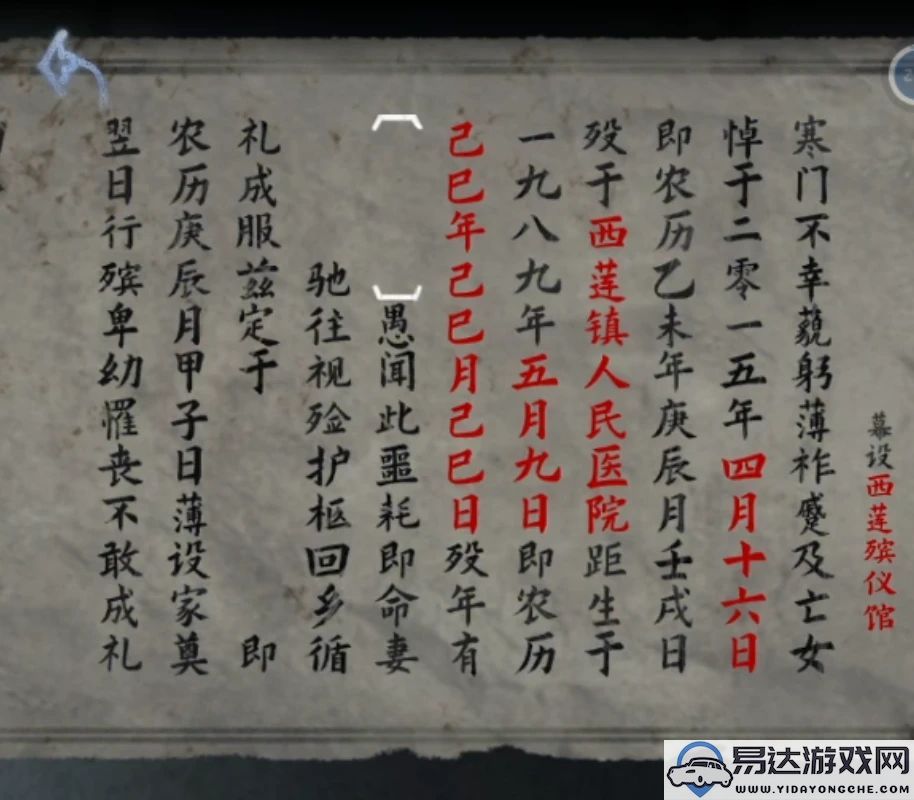 慕设西莲殡仪馆
寒门不幸藐躬薄祚蹙及亡女
悼于二零一五年四月十六日
即农历乙未年庚辰月壬戌日
殁于西莲镇人民医院距生于
一九八九年五月九日即农历
己巳年己巳月己巳日殁年有
愚闻此噩耗即命妻
驰往视殓护柩回乡循
礼成服兹定于 即
农历庚辰月甲子日薄设家奠
翌日行殡卑幼罹丧不敢成礼
易达游戏网
WWW.YIDAYONGCHE.COM